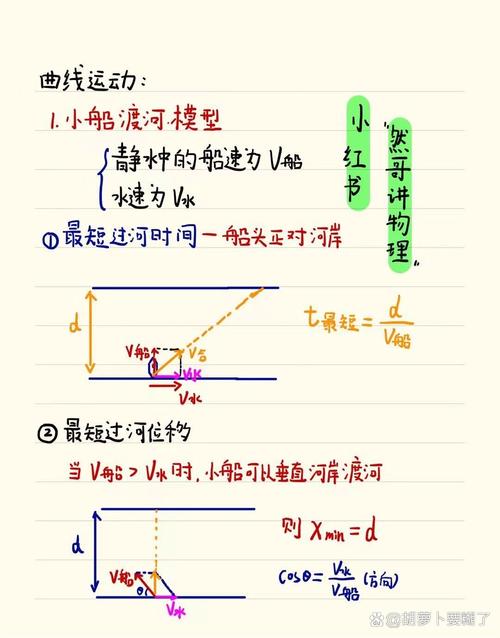 曲线运动:
1.小船渡河模型
静水中的船速为V船
水速为V水
小红书
"然哥讲物理"
①最短过河时间—船头正对河岸
d
V船
V合
V水
V水
t最短=d/V船
②最短过河位移
当V船>V水时,小船可以垂直河岸渡河
d
V船
θ
V水
则 Xmin=d
cosθ=V水/V船(方向)
@胡萝卜要糊了